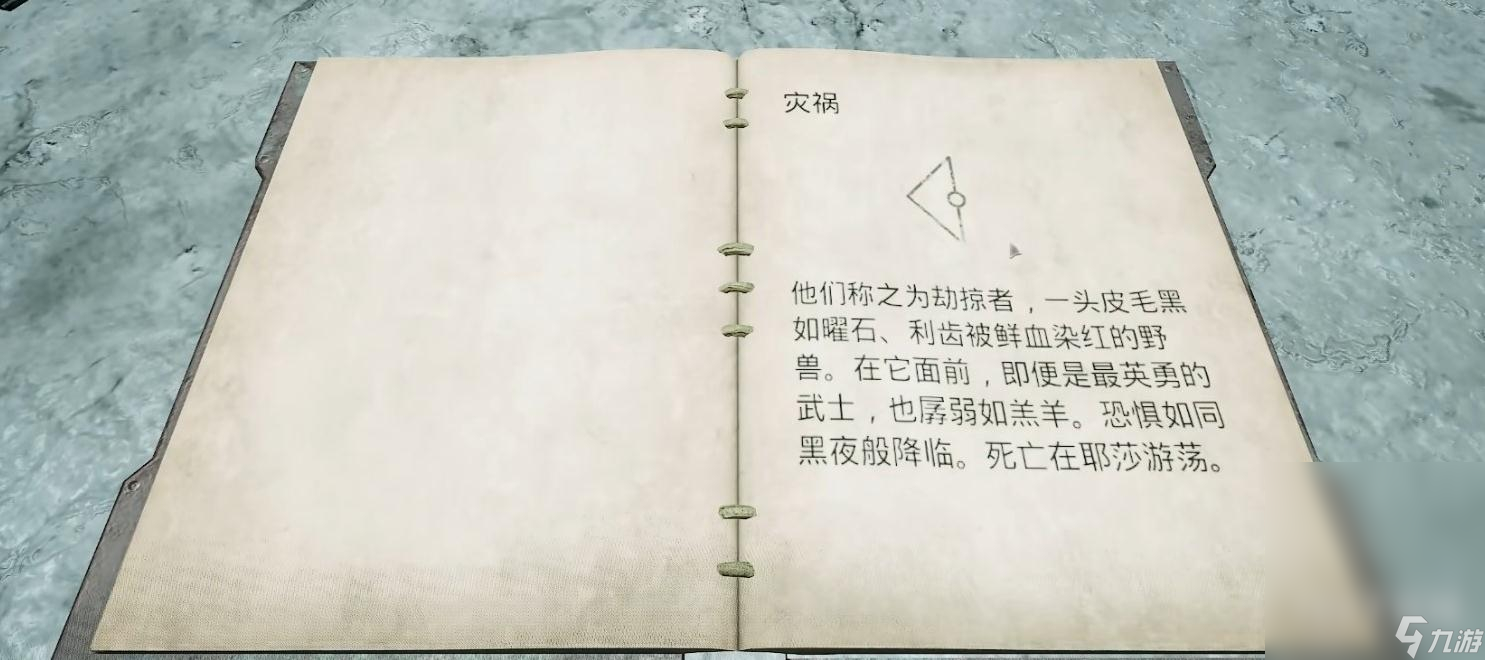 灾祸
他们称之为劫掠者，一头皮毛黑
如曜石、利齿被鲜血染红的野
兽。在它面前，即便是最英勇的
武士，也孱弱如羔羊。恐惧如同
黑夜般降临。死亡在耶莎游荡。
九游